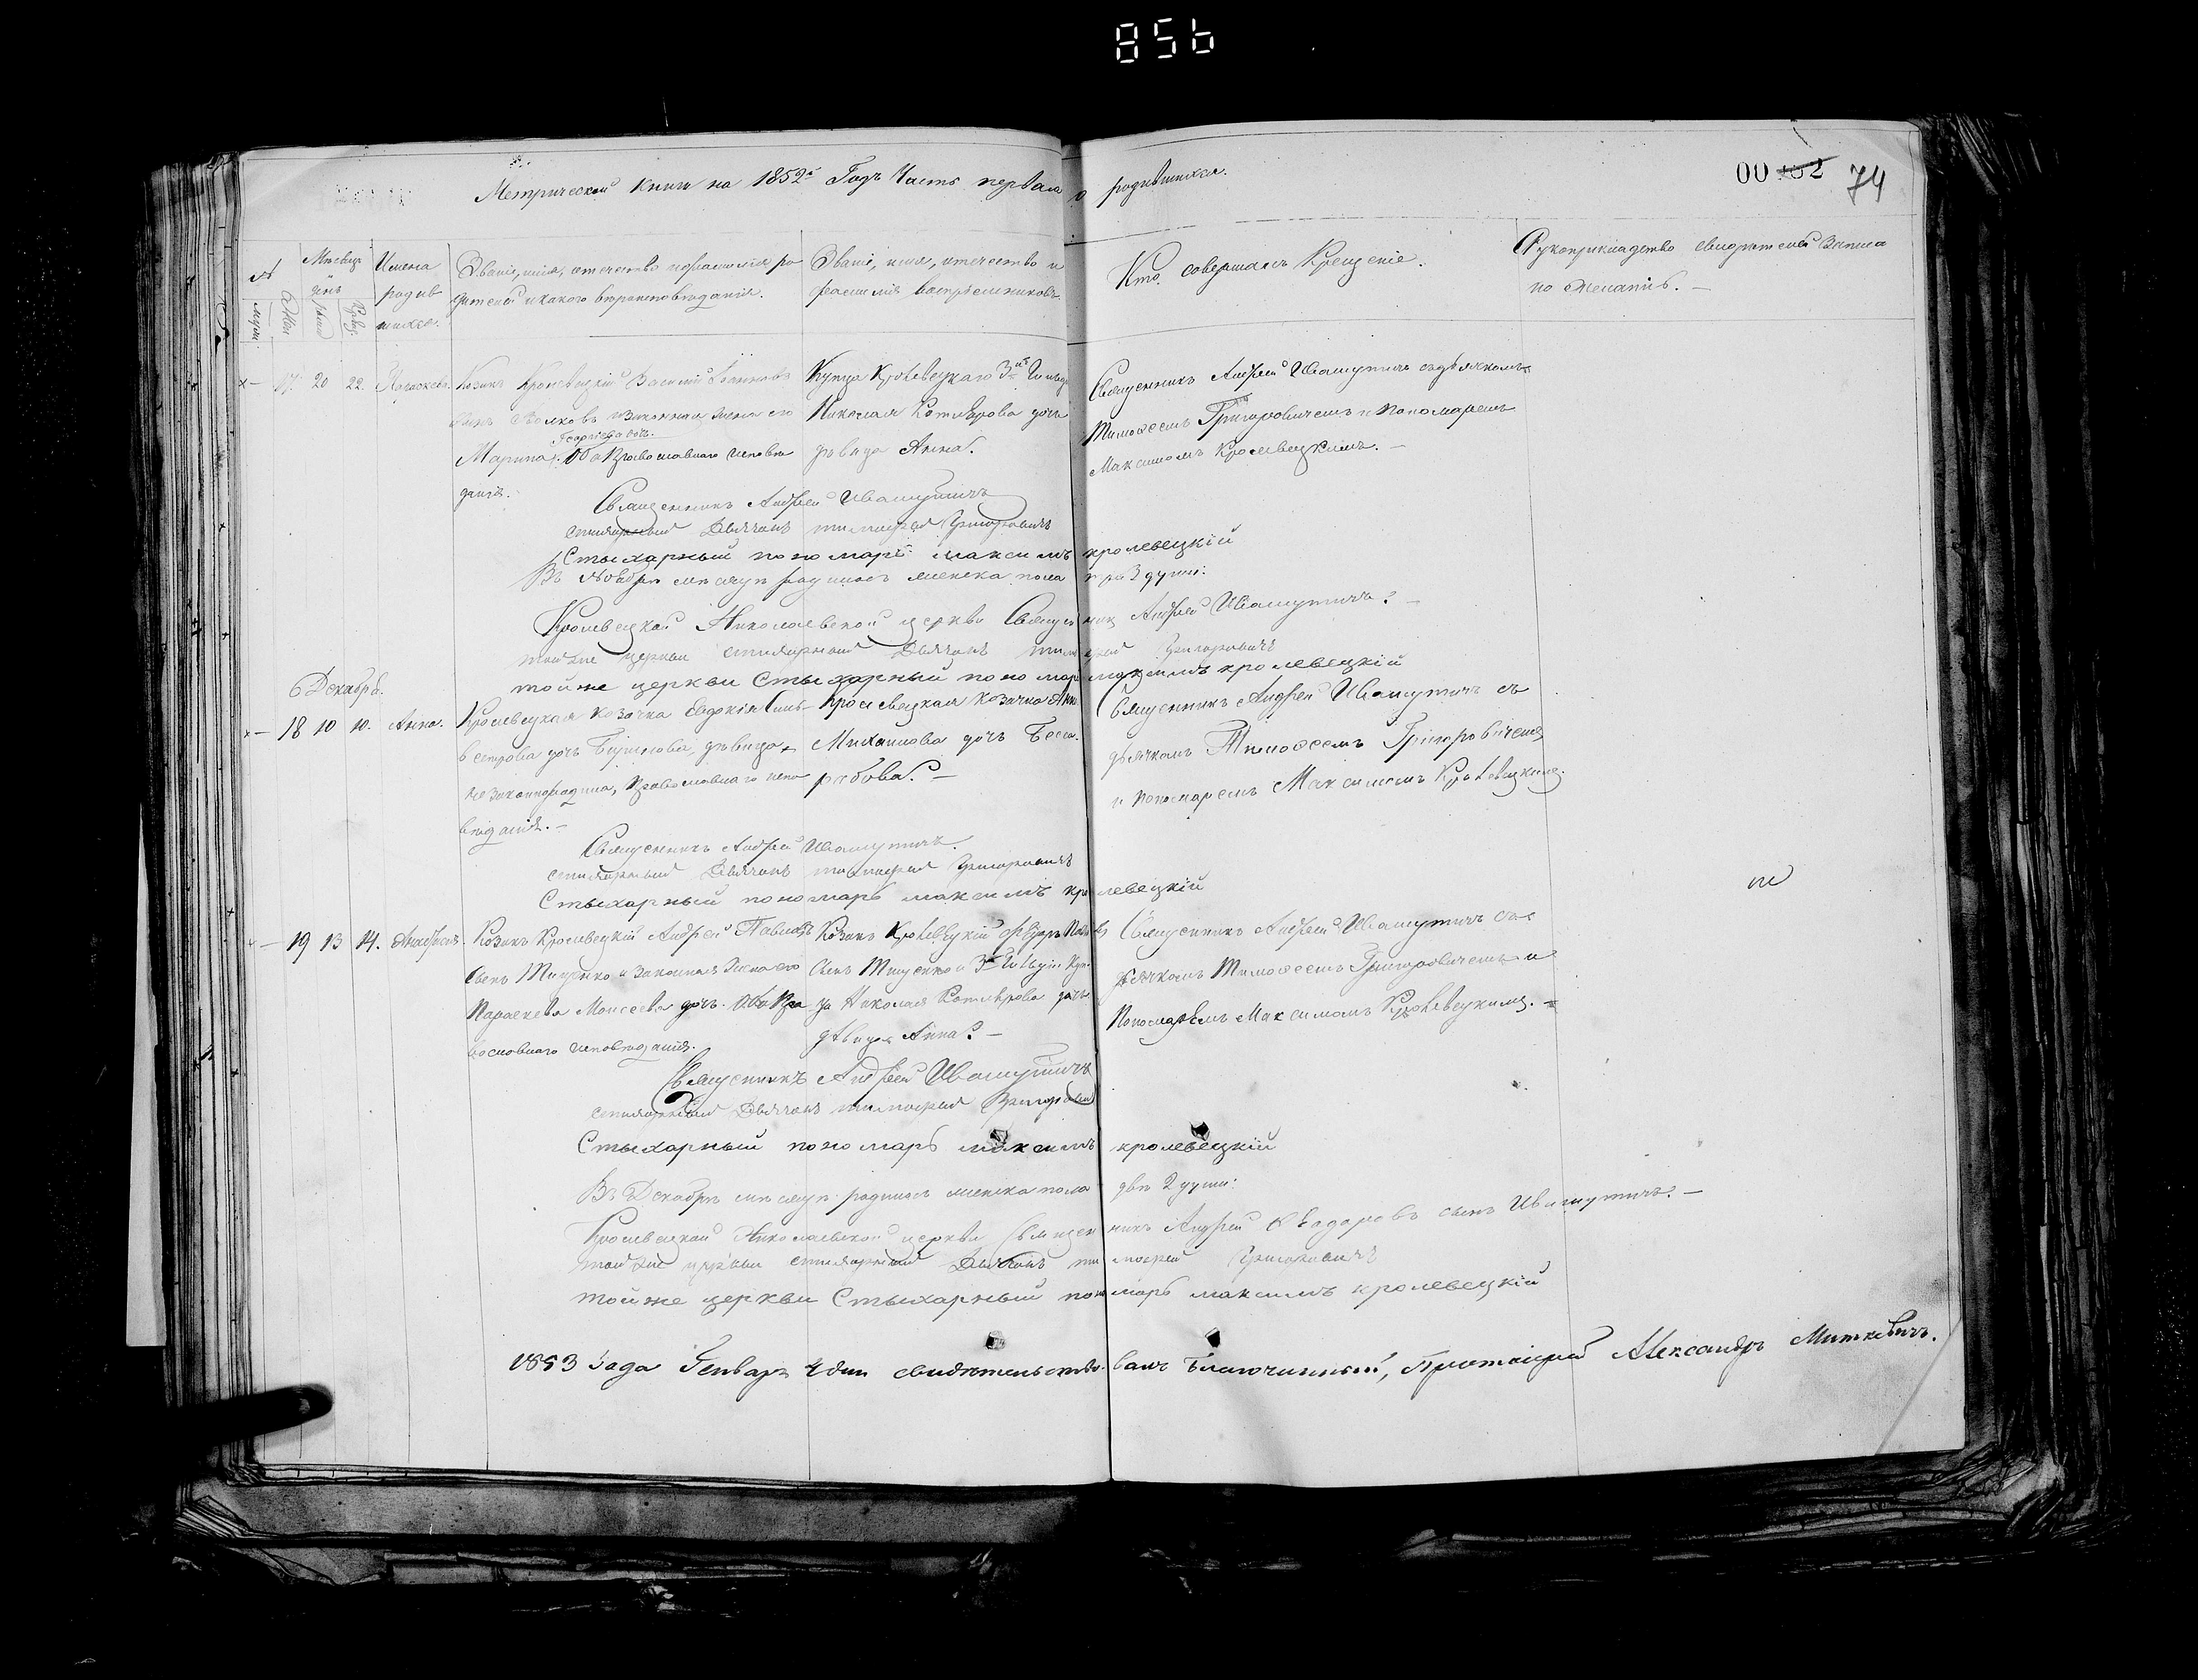 856
00 162 74
Метрической книги на 1852й Годъ Часть первая о родившихся.
№ Мѣсяцъ и день Имена родившихся.
Званіе, имя, отечество и фамилія родителей и какого вѣроисповѣданія.
Званіе, имя, отечество и фамилія воспріемниковъ.
Кто совершалъ Крещеніе.
Рукоприкладство свидѣтелей записи по желанію. —
17. 20 22. Параскева. Козакъ Кролевецкій Василій
сынъ Волковъ и законная жена его
Георгіева дочь.
Марина. Оба Православнаго исповѣ
данія.
Купца Кролевецкаго 3й Гильдіи
Николая Котлярова дочь
дѣвица Анна.
Священникъ Андрей Ивашутичъ съ дьячкомъ
Тимоѳеемъ Григоровичемъ и Пономаремъ
Максимомъ Кролевецкимъ. —
Священникъ Андрей Ивашутичъ
стихарный Дьячокъ тимофей Григоровичъ
Стыхарный пономарь максимъ кролевецкій
Въ Ноябрѣ мѣсяцѣ родилось женска пола три 3 души.
Кролевецкой Николаевской церкви Священникъ Андрей Ивашутичъ. —
той же церкви стихарный Дьячокъ тимофей Григоровичъ
той же церкви Стыхарный пономарь максимъ кролевецкій
Декабрь.
18 10 10. Анна. Кролевецкая козачка Евдокія Силь
вестрова дочь дѣвица,
незаконнорадила, Православнаго испо
вѣданія. —
Кролевецкая козачка Анна
Михайлова дочь Беса
рабова. —
Священникъ Андрей Ивашутичъ съ
дьячкомъ Тимоѳеемъ Григоровичемъ
и пономаремъ Максимомъ Кролевецкимъ.
Священникъ Андрей Ивашутичъ.
стихарный Дьячокъ тимофей Григоровичъ
Стыхарный пономарь максимъ кролевецкій
19 13 14. Анастасія. Козакъ Кролевецкій Андрей Павловъ
сынъ Тищенко и законная жена его
Параскева Моисеева дочь. Оба Пра
вославнаго исповѣданія.
Козакъ Кролевецкій Павловъ
сынъ Тищенко и 3й Гильдіи Куп
ца Николая Котлярова дочь
дѣвица Анна. —
Священникъ Андрей Ивашутичъ съ
дьячкомъ Тимоѳеемъ Григоровичемъ и
Пономаремъ Максимомъ Кролевецкимъ. =
Священникъ Андрей Ивашутичъ
стихарный Дьячокъ тимофей Григоровичъ
Стыхарный пономарь максимъ кролевецкій
Въ Декабрѣ мѣсяцѣ родилось женска пола двѣ 2 души:
Кролевецкой Николаевской церкви Священникъ Андрей сынъ Ивашутичъ. —
той же церкви стихарный Дьячокъ тимофей Григоровичъ
той же церкви Стыхарный пономарь максимъ кролевецкій
1853 Года Генваря дня свидѣтельствовалъ Благочинный, Протоіерей Александръ Миткевичъ.